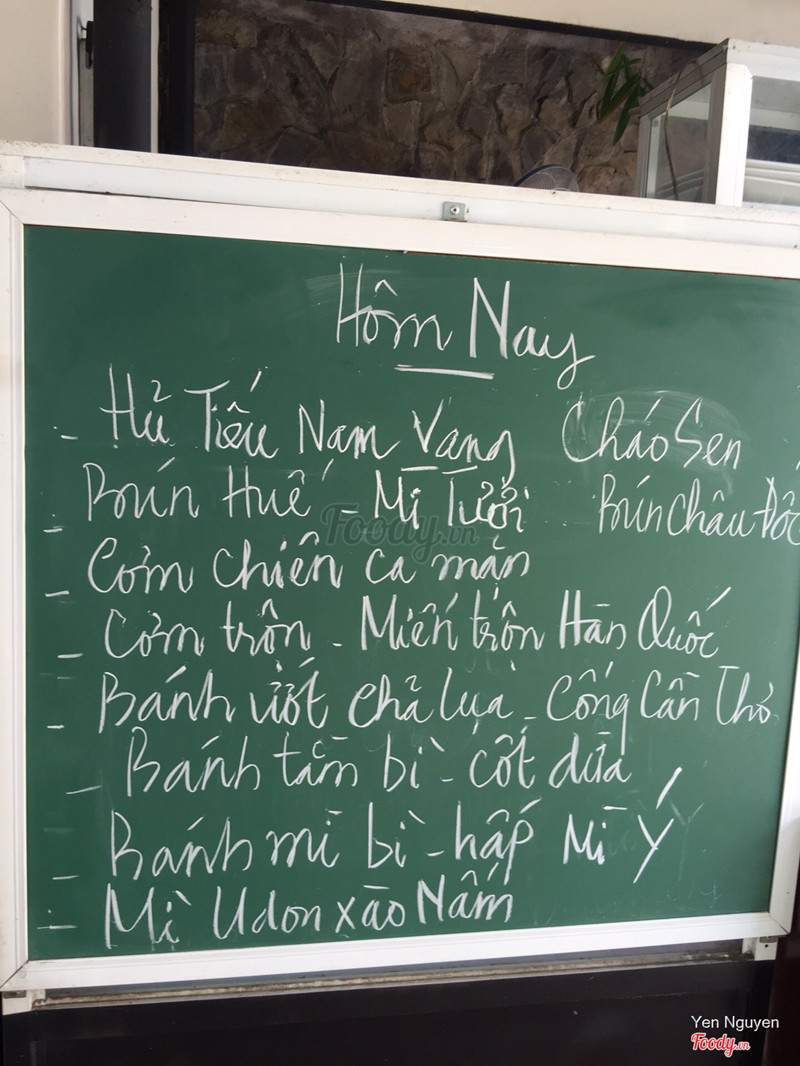 Hôm Nay
- Hủ Tiếu Nam Vang Cháo Sen
- Bún Huế - Mì Tươi Bún Châu Đốc
- Cơm chiên cá mặn
- Cơm trộn - Miến trộn Hàn Quốc
- Bánh ướt chả lụa - Cống Cần Thơ
- Bánh tằm bì - cốt dừa
- Bánh mì bì - hấp Mì Ý
- Mì Udon xào Nấm
Foody.vn
Yen Nguyen
Foody.vn